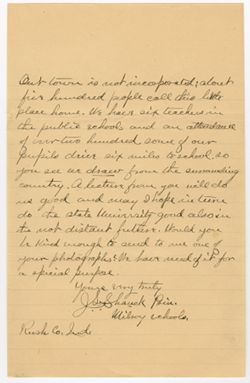 Our town is not incorporated; about
five hundred people call this little
place home. We have six teachers in
the public schools and an attendance
of over two hundred some of our
pupils drive six miles to school. so
you see we draw from the surrounding
country. A lecture from you will do
us good and may I hope in turn
do the state University good also in
the not distant future. Would you
be kind enough to send to me one of
your photographs? We have need of it for
a special purpose.
Yours very truly
Shauck Prin.
Milroy schools.
Rush Co. Ind.